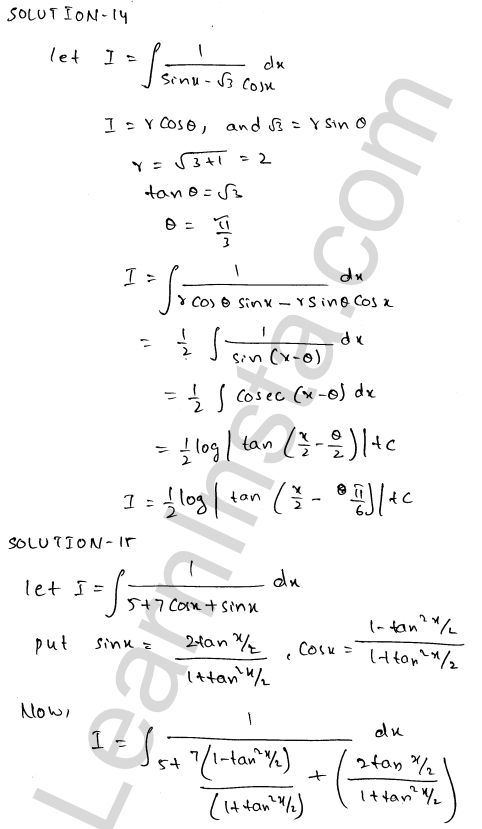 SOLUTION-14
let I = ∫ 1/(sinx - √3 cosx) dx
I = r cosθ, and √3 = r sinθ
r = √(3+1) = 2
tanθ = √3
θ = π/3
I = ∫ 1/(r cosθ sinx - r sinθ cosx) dx
= 1/2 ∫ 1/sin(x-θ) dx
= 1/2 ∫ cosec (x-θ) dx
= 1/2 log |tan (x/2 - θ/2)| + c
I = 1/2 log |tan (x/2 - π/6)| + c
SOLUTION-15
let I = ∫ 1/(5+7 cosx + sinx) dx
put sinx = 2tan x/2 / (1+tan² x/2), cosx = (1-tan² x/2)/(1+tan² x/2)
Now,
I = ∫ 1/(5+ 7(1-tan² x/2)/(1+tan² x/2) + (2tan x/2 / (1+tan² x/2))) dx
LearnInsta.com